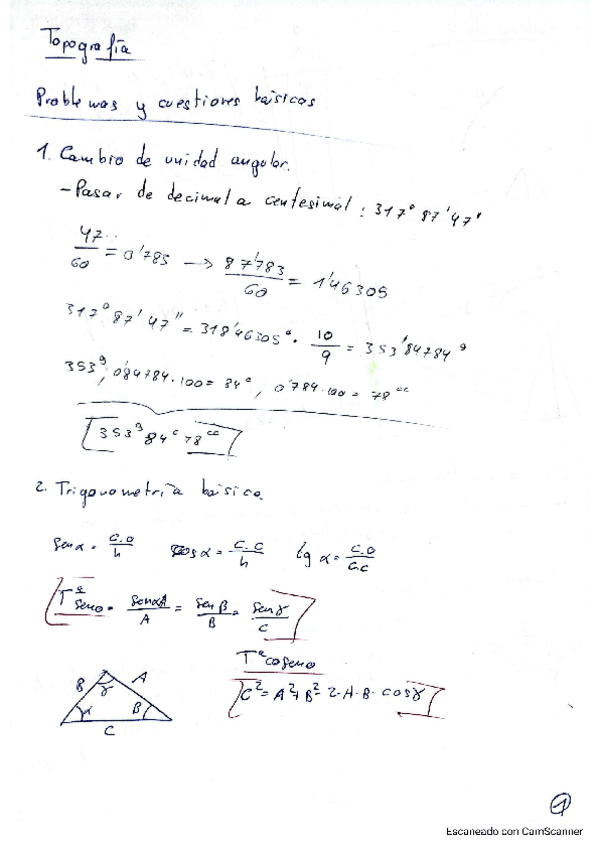 Topografía
Problemas y cuestiones básicos
1. Cambio de unidad angular.
- Pasar de decimal a centesimal: 317° 87' 47"
47/60 = 0'785 → 87'783/60 = 1'46305
317° 87' 47" = 318'46305° · 10/9 = 353'84784 g
353 g, 0'84784 · 100 = 84 c, 0'784 · 100 = 78 cc
353 g 84 c 78 cc
2. Trigonometría básica.
sen α = c.o/h cos α = c.c/h tg α = c.o/c.c
Tª seno = sen α A/A = sen β/B = sen γ/C
Tª coseno
C² = A² + B² 2·A·B·cos γ
B γ A
α β
C
1
Escaneado con CamScanner